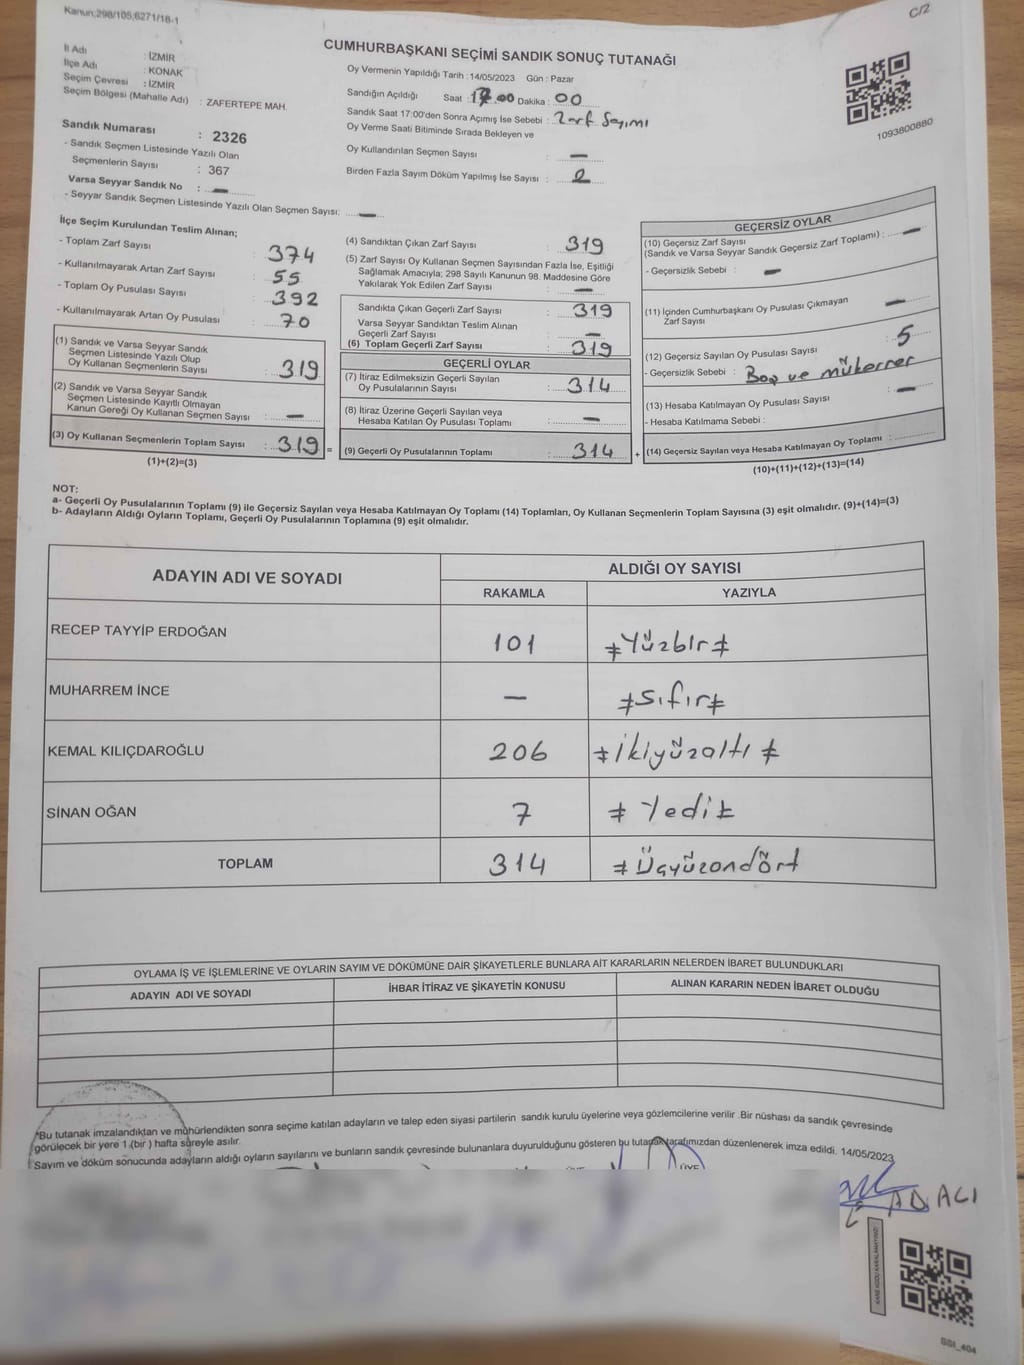 Kanun:298/105;6271/18-1
C/2
CUMHURBAŞKANI SEÇİMİ SANDIK SONUÇ TUTANAĞI
İl Adı : İZMİR
İlçe Adı : KONAK
Seçim Çevresi : İZMİR
Seçim Bölgesi (Mahalle Adı) : ZAFERTEPE MAH.
Sandık Numarası : 2326
- Sandık Seçmen Listesinde Yazılı Olan
Seçmenlerin Sayısı : 367
Varsa Seyyar Sandık No : —
- Seyyar Sandık Seçmen Listesinde Yazılı Olan Seçmen Sayısı: —
Oy Vermenin Yapıldığı Tarih : 14/05/2023 Gün : Pazar
Sandığın Açıldığı Saat : 17.00 Dakika : 00
Sandık Saat 17:00'den Sonra Açımış İse Sebebi : Zarf Sayımı
Oy Verme Saati Bitiminde Sırada Bekleyen ve
Oy Kullandırılan Seçmen Sayısı : —
Birden Fazla Sayım Döküm Yapılmış İse Sayısı : 2
1093800880
İlçe Seçim Kurulundan Teslim Alınan;
- Toplam Zarf Sayısı : 374
- Kullanılmayarak Artan Zarf Sayısı : 55
- Toplam Oy Pusulası Sayısı : 392
- Kullanılmayarak Artan Oy Pusulası : 70
(1) Sandık ve Varsa Seyyar Sandık
Seçmen Listesinde Yazılı Olup
Oy Kullanan Seçmenlerin Sayısı : 319
(2) Sandık ve Varsa Seyyar Sandık
Seçmen Listesinde Kayıtlı Olmayan
Kanun Gereği Oy Kullanan Seçmen Sayısı : —
(3) Oy Kullanan Seçmenlerin Toplam Sayısı : 319 =
(1)+(2)=(3)
(4) Sandıktan Çıkan Zarf Sayısı : 319
(5) Zarf Sayısı Oy Kullanan Seçmen Sayısından Fazla İse, Eşitliği
Sağlamak Amacıyla; 298 Sayılı Kanunun 98. Maddesine Göre
Yakılarak Yok Edilen Zarf Sayısı : —
Sandıkta Çıkan Geçerli Zarf Sayısı : 319
Varsa Seyyar Sandıktan Teslim Alınan
Geçerli Zarf Sayısı : —
(6) Toplam Geçerli Zarf Sayısı : 319
GEÇERLİ OYLAR
(7) İtiraz Edilmeksizin Geçerli Sayılan
Oy Pusulalarının Sayısı : 314
(8) İtiraz Üzerine Geçerli Sayılan veya
Hesaba Katılan Oy Pusulası Toplamı : —
(9) Geçerli Oy Pusulalarının Toplamı : 314 +
GEÇERSİZ OYLAR
(10) Geçersiz Zarf Sayısı
(Sandık ve Varsa Seyyar Sandık Geçersiz Zarf Toplamı) : —
- Geçersizlik Sebebi : —
(11) İçinden Cumhurbaşkanı Oy Pusulası Çıkmayan
Zarf Sayısı —
(12) Geçersiz Sayılan Oy Pusulası Sayısı : 5
- Geçersizlik Sebebi : Boş ve mükerrer
(13) Hesaba Katılmayan Oy Pusulası Sayısı —
- Hesaba Katılmama Sebebi :
(14) Geçersiz Sayılan veya Hesaba Katılmayan Oy Toplamı :
(10)+(11)+(12)+(13)=(14)
NOT:
a- Geçerli Oy Pusulalarının Toplamı (9) ile Geçersiz Sayılan veya Hesaba Katılmayan Oy Toplamı (14) Toplamları, Oy Kullanan Seçmenlerin Toplam Sayısına (3) eşit olmalıdır. (9)+(14)=(3)
b- Adayların Aldığı Oyların Toplamı, Geçerli Oy Pusulalarının Toplamına (9) eşit olmalıdır.
ADAYIN ADI VE SOYADI
ALDIĞI OY SAYISI
RAKAMLA YAZIYLA
RECEP TAYYİP ERDOĞAN 101 #Yüzbir#
MUHARREM İNCE — #Sıfır#
KEMAL KILIÇDAROĞLU 206 #İkiyüzaltı#
SİNAN OĞAN 7 #Yedi#
TOPLAM 314 #Üçyüzondört
OYLAMA İŞ VE İŞLEMLERİNE VE OYLARIN SAYIM VE DÖKÜMÜNE DAİR ŞİKAYETLERLE BUNLARA AİT KARARLARIN NELERDEN İBARET BULUNDUKLARI
ADAYIN ADI VE SOYADI
İHBAR İTİRAZ VE ŞİKAYETİN KONUSU
ALINAN KARARIN NEDEN İBARET OLDUĞU
*Bu tutanak imzalandıktan ve mühürlendikten sonra seçime katılan adayların ve talep eden siyasi partilerin sandık kurulu üyelerine veya gözlemcilerine verilir .Bir nüshası da sandık çevresinde
görülecek bir yere 1 (bir ) hafta süreyle asılır.
Sayım ve döküm sonucunda adayların aldığı oyların sayılarını ve bunların sandık çevresinde bulunanlara duyurulduğunu gösteren bu tutanak tarafımızdan düzenlenerek imza edildi. 14/05/2023
ÜYE
ADALI
KARE KODU KARALAMAYINIZ!
SSI_404